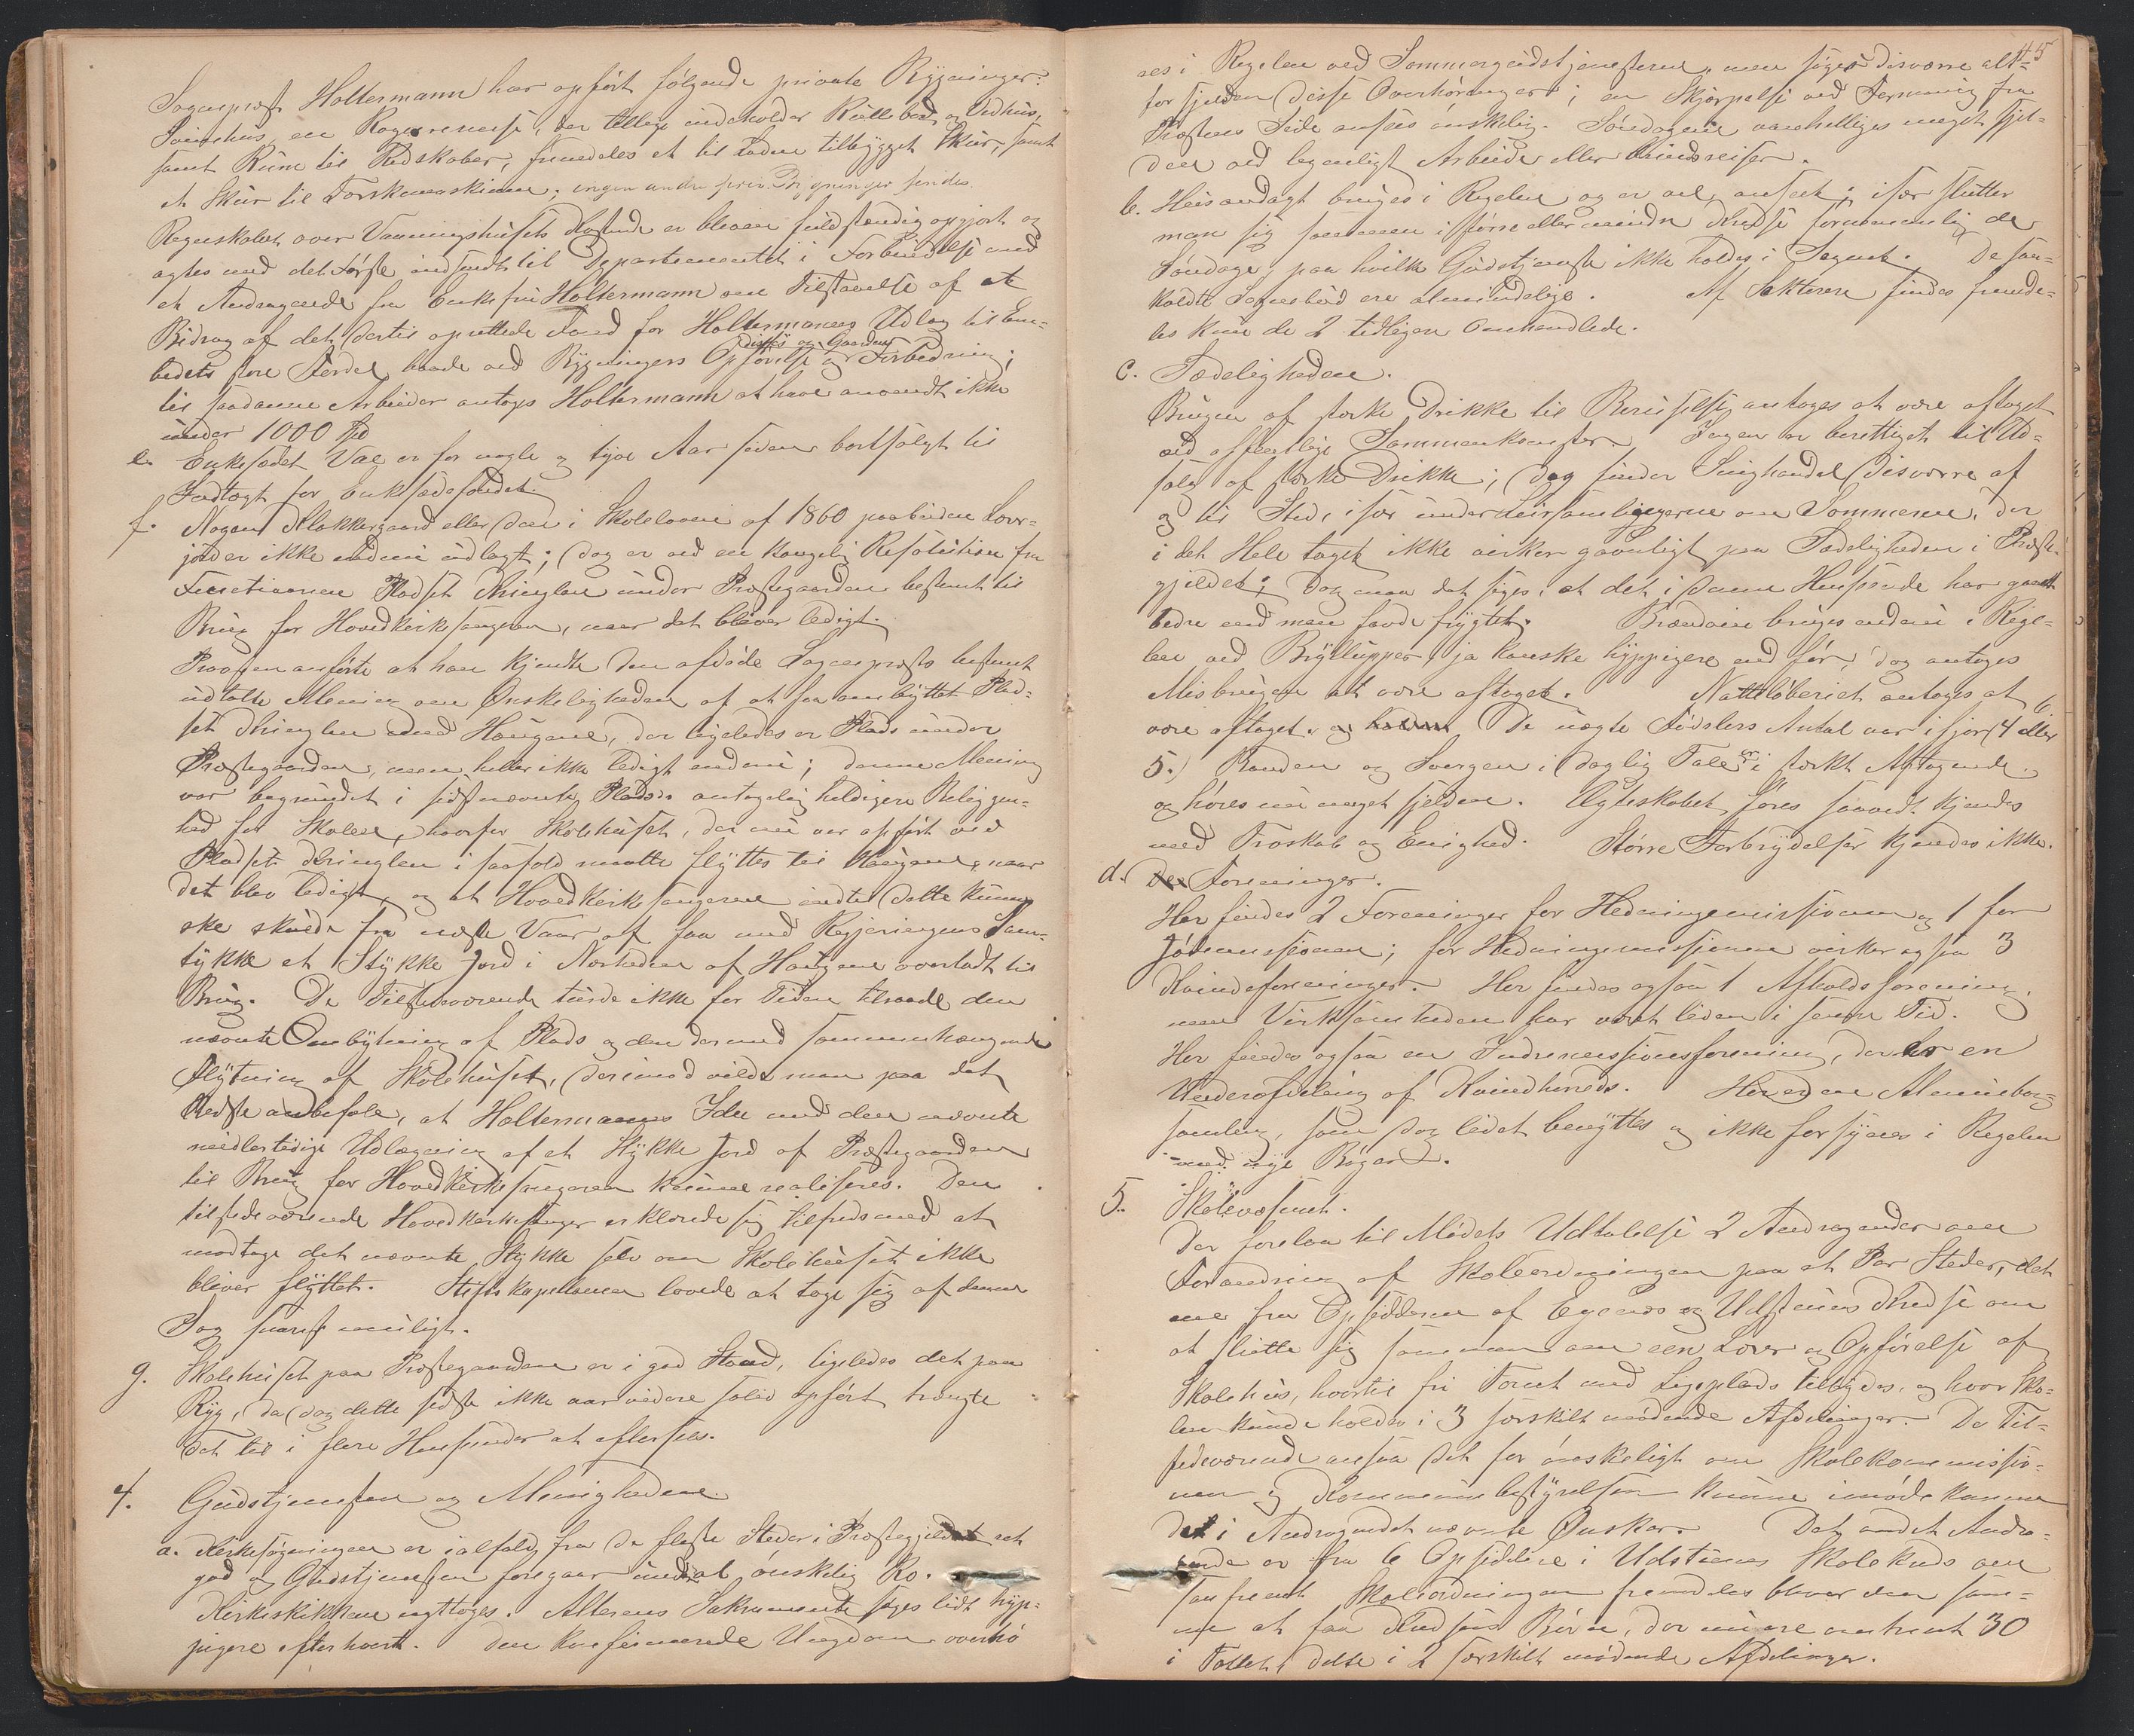 Sognepræst Holtermann har opført følgende private Bygninger:
samt Rum til Redskaber, fremdeles et til Laden tilbygget Skur, samt
et Skur til Tærskemaskine; ingen andre priv. Bygninger findes.
Regnskabet over Vaaningshusets er bleven fuldstændig opgjort og
agtes med det første indsendt til Departementet i Forbindelse med
et Andragende fra Enkefru Holtermann om Tilstaaelse af et
Bidrag af det dertil oprettede Fond for Holtermanns Udlæg til Em-
bedets sore Fordel baade ved Bygningers Opførelse og Gaardens Forbedring;
til saadanne Arbeider antoges Holtermann at have anvendt ikke
under 1000 Spd
e. Enkesædet Vae er for nogle og tyve Aar siden bortsolgt til
Indtægt for Enkesædefondet.
f. Nogen Klokkergaard eller den i Skoleloven af 1860 paabudne Lærer-
jord er ikke endnu udlagt; dog er ved en kongelig Resolution fra
Pladset Kringlen under Præstegaarden bestemt til
Brug for Hovedkirkesangeren, naar det bliver ledigt.
Provsten anførte at han kjendte den afdøde Sognepræsts bestemt
udtalte Mening om Ønskeligheden af at faa ombyttet Plad-
set Kringlen med Haugene, der ligeledes er Plads under
Præstegaarden, men heller ikke ledigt endnu; denne Mening
var begrundet i sidstnævnte Plads's antagelig heldigere Beliggen-
hed for Skolen, hvorfor Skolehuset, der nu var opført ved
Pladset Kringlen i saafald maatte flyttes til Haugene, naar
det blev ledigt, og at Hovedkirkesangeren indtil dette kunde
ske skulde fra næste Vaar af faa med Regjeringens Sam-
tykke et Stykke Jord i Nærheden af Haugene overladt til
Brug. De Tilstedeværende turde ikke for Tiden tilraade den
nævnte Ombytning af Plads og den dermed sammenhængende
Flytning af Skolehuset, derimod vilde man paa det
Bedste anbefale, at Holtermanns Ide med den nævnte
midlertidige Udlægning af et Stykke Jord af Præstegaarden
til Brug for Hovedkirkesangeren kunne realiseres. Den
tilstedeværende Hovedkirkesanger erklærede sig tilfreds med at
modtage det nævnte Stykke selv om Skolehuset ikke
bliver flyttet. Stiftskapellanen lovede at tage sig af denne
Sag snarest muligt.
g. Skolehuset paa Præstegaarden er i god Stand, ligeledes det paa
Ryg, da dog dette sidste ikke var videre solid opført trængte
det til i flere Henseender at eftersees.
4. Gudstjenesten og Menigheden.
a. Kirkesøgningen er ialfald fra de fleste Steder i Præstegjeldet ret
god og Gudstjenesten foregaar under al ønskelig Ro.
Kirkeskikken iagttages. Alterens Sakramente søges lidt hyp-
pigere efterhvert. Den konfirmerede Ungdom overhø
45
res i Regelen ved Sommergudstjenesterne, men søger desværre alt-
for sjelden disse Overhøringer; en Skjærpelse ved Formaning fra
Præstens Side ansees ønskelig. Søndagene vanhelliges meget sjel-
den ved legemligt Arbeide eller
b. Husandagt bruges i Regelen og er vel anseet; især slutter
man sig sammen i større eller mindre Kredse fornemmelig de
Søndage, paa hvilke Gudstjeneste ikke holdes i Sognet. De saa-
kaldte Sognebud ere almindelige. Af Sekterere findes fremde-
les kun de 2 tidligere omhandlede.
c. Sædeligheden.
Brugen af stærke Drikke til Beruselse antages at være aftaget
ved offentlige Sammenkomster. Ingen er berettiget til Ud-
salg af stærke Drikke; dog finder Smughandel desværre af
og til Sted, især under om Sommeren, der
i det Hele taget ikke virker gavnligt paa Sædeligheden i Præste-
gjeldet; Dog maa det siges, at det i denne Henseende har gaaet
bedre end man havde frygtet. Brændevin bruges endnu i Rege-
len ved Bryllupper, ja kanske hyppigere end før, dog antages
Misbrugen at være aftaget. Natteløberiet antages at
være aftaget. De uægte Fødslers Antal var ifjor (4 eller
5.) Banden og Sværgen i daglig Tale er i stærkt Aftagende
og høres nu meget sjelden. Ægteskabet føres saavidt kjendes
med Troskab og Enighed. Større Forbrydelser kjendes ikke.
d. Foreninger.
Her findes 2 Foreninger for Hedningemissionen og 1 for
Jødemissionen; for Hedningemissionen virker ogsaa 3
Kvindeforeninger. Her findes ogsaa 1 Afholdsforening,
men Virksomheden har været liden i senere Tid.
Her findes ogsaa en Indremissionsforening, der er en
Underafdeling af Kvindherreds. Her er en Almuebog-
samling, som dog lidet benyttes og ikke forsynes i Regelen
med nye Bøger.
5. Skolevæsenet.
Der forelaa til Mødets Udtalelse 2 Andragender om
Forandring af Skoleordningen paa et Par Steder, det
ene fra Opsidderne af og Udstenes Kredse om
at slutte sig sammen om een Lærer og Opførelse af
Skolehus, hvortil fri Tomt med Legeplads tilbydes, og hvor Sko-
len kunde holdes i 3 særskilt mødende Afdelinger. De Til-
stedeværende ansaa det for ønskeligt om Skolekommissio-
nen og Kommunebestyrelsen kunne imødekomme
det i Andragendet nævnte Ønske. Det andet Andra-
gende er fra 6 Opsiddere i Udstenes Skolekreds om
saafremt Skoleordningen fremdeles bliver den sam-
me at faa Kredsens Børn, der nu ere omtrent 30
i Tallet, delte i 2 særskilt mødende Afdelinger.